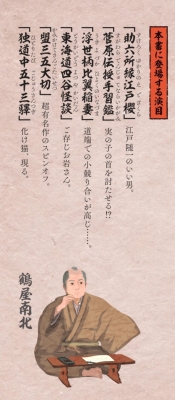 本書に登場する演目
「助六所縁江戸櫻」 江戸随一のいい男。
「菅原伝授手習鑑」 実の子の首を討たせる!?
「浮世柄比翼稲妻」 道端での小競り合いが高じ……。
「東海道四谷怪談」 ご存じお岩さん。
「盟三五大切」 超有名作のスピンオフ。
「独道中五十三驛」 化け猫、現る。
鶴屋南北